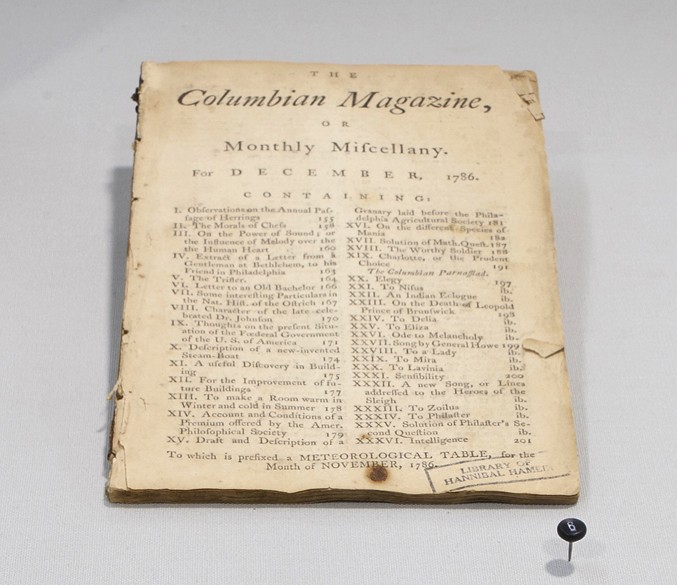 THE
Columbian Magazine,
OR
Monthly Miſcellany.
For DECEMBER, 1786.
CONTAINING:
I. Obſervations on the Annual Paſ-
ſage of Herrings 155
II. The Morals of Cheſs 158
III. On the Power of Sound; or
the Influence of Melody over the
the Human Heart 160
IV. Extract of a Letter from a
Gentleman at Bethlehem, to his
Friend in Philadelphia 163
V. The Trifler. 164
VI. Letter to an Old Bachelor 166
VII. Some intereſting Particulars in
the Nat. Hiſt. of the Oſtrich 167
VIII. Character of the late cele-
beated Dr. Johnſon 170
IX. Thoughts on the preſent Situ-
ation of the Fœderal Government
of the U. S. of America 171
X. Deſcription of a new-invented
Steam-Boat 174
XI. A uſeful Diſcovery in Build-
ing 175
XII. For the Improvement of fu-
ture Buildings 177
XIII. To make a Room warm in
Winter and cold in Summer 178
XIV. Account and Conditions of a
Premium offered by the Amer.
Philoſophical Society 179
XV. Draft and Deſcription of a
Granary laid before the Phila-
delphia Agricultural Society 181
XVI. On the different Species of
Mania 182
XVII. Solution of Math. Queſt. 187
XVIII. The Worthy Soldier 188
XIX. Charlotte, or the Prudent
Choice 191
The Columbian Parnaſſiad.
XX. Elegy 197
XXI. To Niſus ib.
XXII. An Indian Eclogue ib.
XXIII. On the Death of Leopold
Prince of Brunſwick 198
XXIV. To Delia ib.
XXV. To Eliza ib.
XXVI. Ode to Melancholy ib.
XXVII. Song by General Howe 199
XXVIII. To a Lady ib.
XXIX. To Mira ib.
XXX. To Lavinia ib.
XXXI. Senſibility 200
XXXII. A new Song, or Lines
addreſſed to the Heroes of the
Sleigh ib.
XXXIII. To Zoilus ib.
XXXIV. To Philaſter ib.
XXXV. Solution of Philaſter's Se-
cond Queſtion ib.
XXXVI. Intelligence 201
To which is prefixed a METEOROLOGICAL TABLE, for the
Month of NOVEMBER, 1786.
LIBRARY OF
HANNIBAL HAMLIN
6